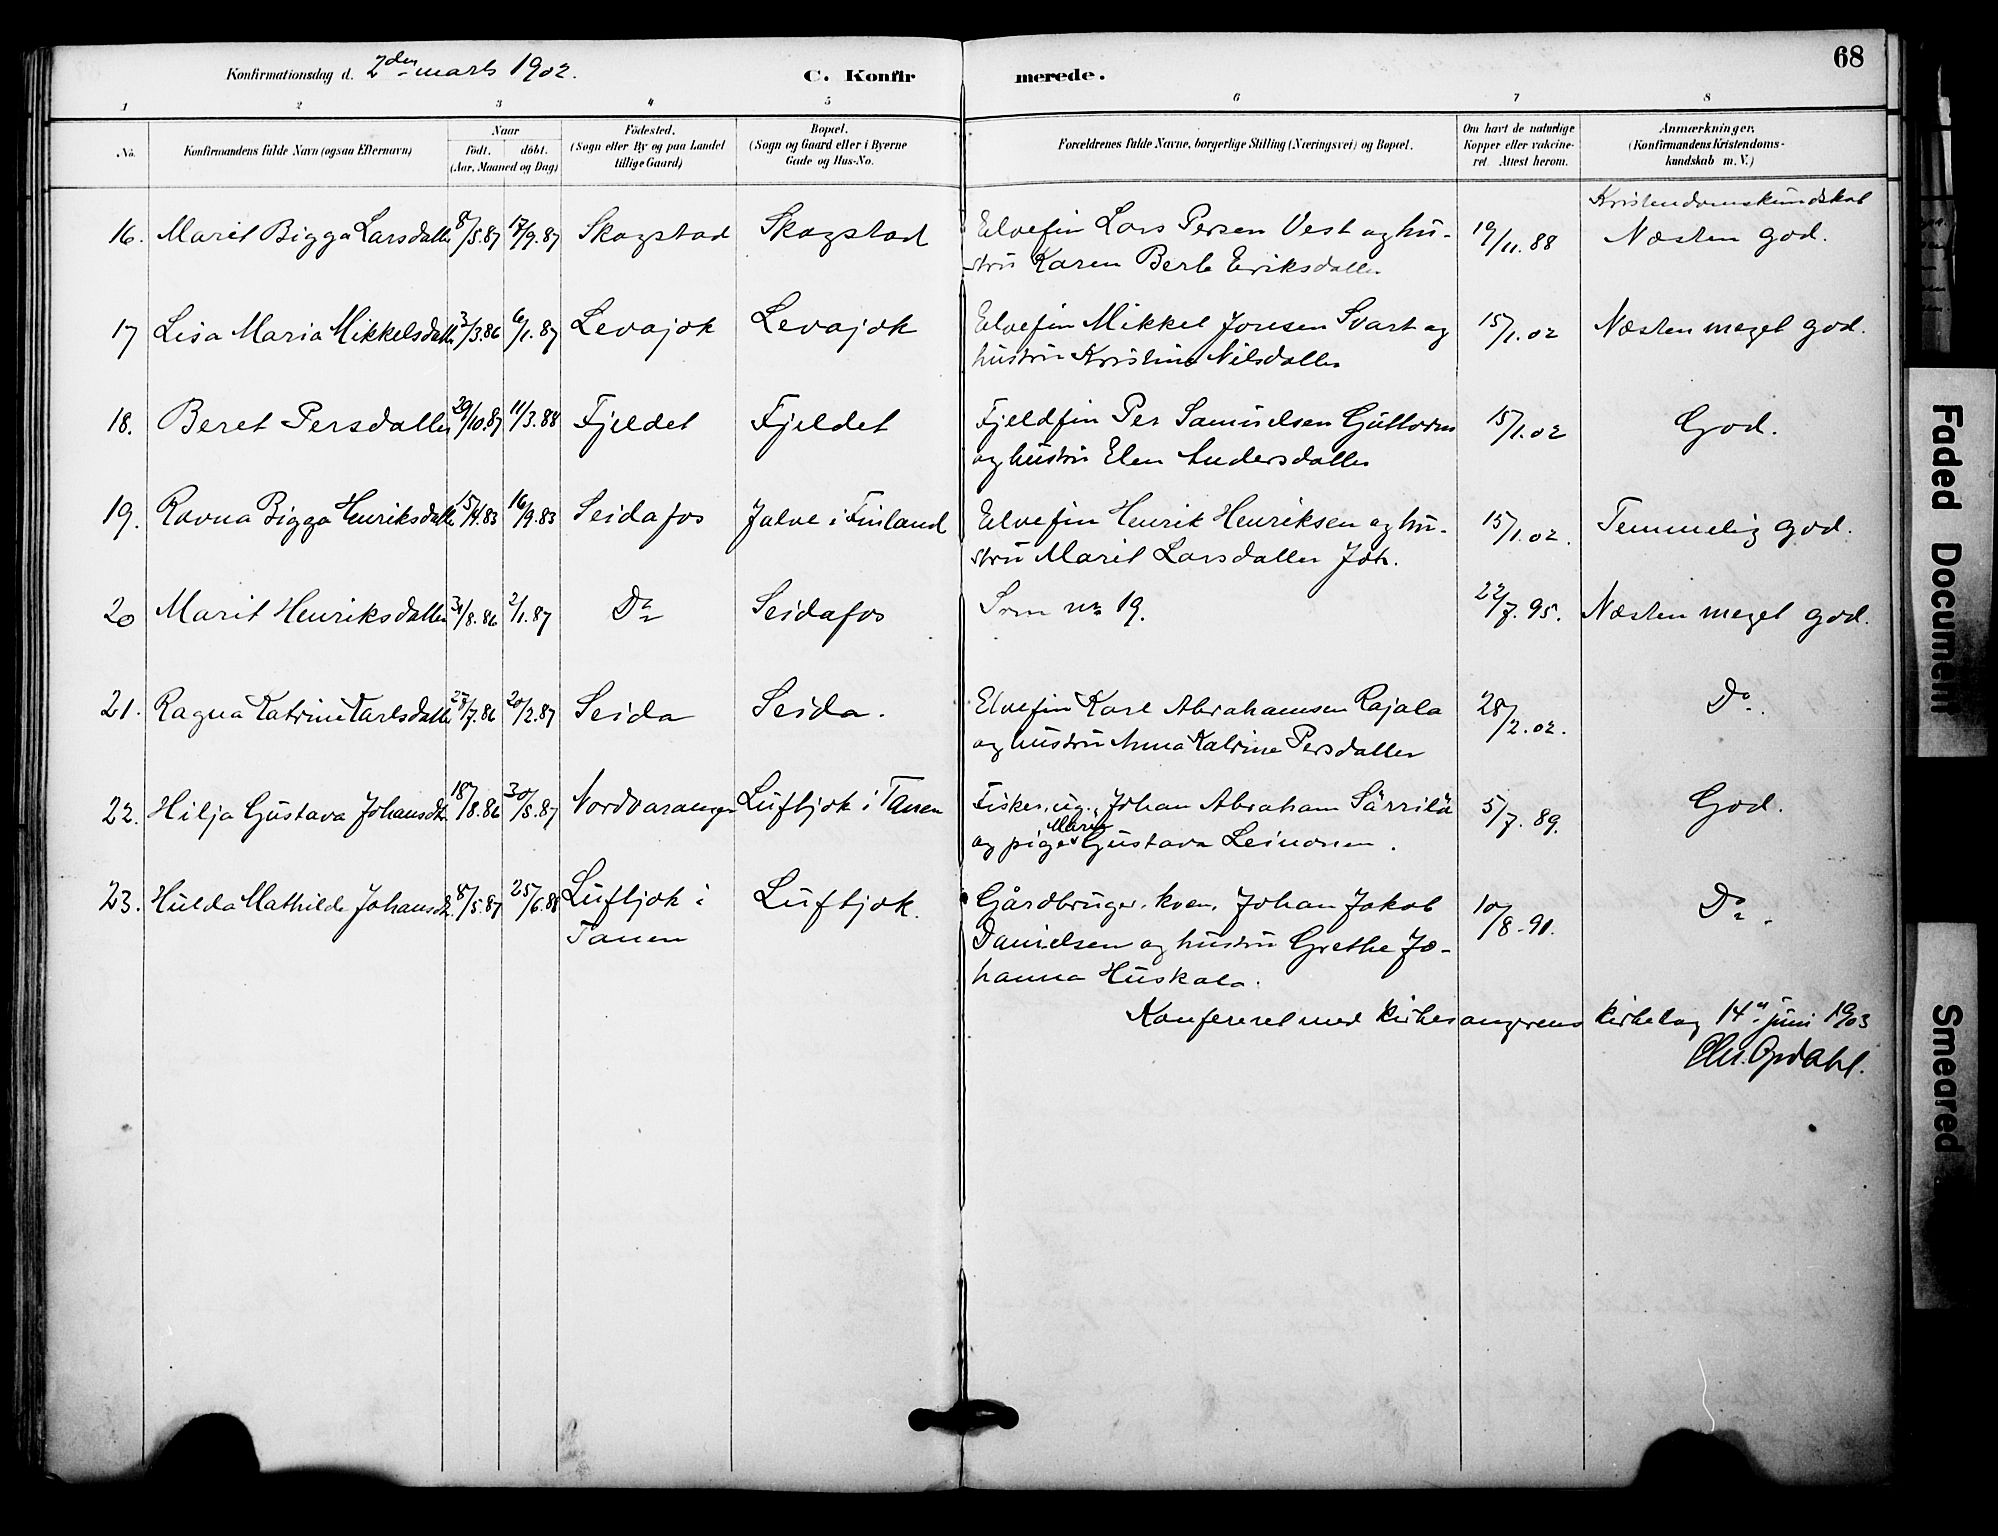 68
Konfirmationsdag d. 2den marts 1902.
C. Konfirmerede.
1 2 3 4 5 6 7 8
No.
Konfirmandens fulde Navn (ogsaa Efternavn)
Naar
født. døbt.
(Aar, Maaned og Dag)
Fødested.
(Sogn eller By og paa Landet
tillige Gaard)
Bopæl.
(Sogn og Gaard eller i Byerne
Gade og Hus-No.
Forældrenes fulde Navne, borgerlige Stilling (Næringsvei) og Bopæl.
Om havt de naturlige
Kopper eller vakcine-
ret Attest herom.
Anmærkninger.
(Konfirmandens Kristendoms-
kundskab m. V.)
Kristendomskundskab
16. Marit Bigga Larsdatter 8/5.87 17/9.87 Skogstad Skogstad Elvefin Lars Persen Vest og hu- 19/11.88 Næsten god.
stru Karen Berte Eriksdatter
17 Lisa Maria Mikkelsdatter 3/3.86 6/1.87 Levajok Levajok Elvefin Mikkel Joresen Svart og 15/1.02 Næsten meget god.
hustru Kristine Nilsdatter
18. Beret Persdatter 29/10.87 11/3.88 Fjeldet Fjeldet Fjeldfin Per Samuelsen Guttorm 15/1.02 God.
og hustru Elen Andersdatter
19. Ravna Bigga Henriksdatter 15/4.83 16/9.83 Seidafos Jalve i Finland Elvefin Henrik Henriksen og hu- 15/1.02. Temmelig god.
stru Marit Larsdatter Joh.
20 Marit Henriksdatter 31/8.86 2/1.87 Do Seidafos Som no 19. 22/7.95. Næsten meget god.
21. Ragna Katrine Karlsdatter 28/7.86 20/2.87 Seida Seida. Elvefin Karl Abrahamsen Rajala 28/2.02. Do.
og hustru Anna Katrine Persdatter
22. Hilja Gustava Johansdtr. 18/8.86 30/5.87 Nordvaranger Luftjok i Tanen Fisker, ug., Johan Abraham Särrilä 5/7.89. God.
og pige Maria Gustava Leinonen.
23. Hulda Mathilde Johansdtr. 8/5.87 25/6.88 Luftjok i Luftjok. Gårdbruger, kven, Johan Jakob 10/8.91. Do.
Tanen Danielsen og hustru Grethe Jo-
hanna Huskala.
Konfereret med kirkesangerens kirkebog 14de juni 1903
Chr. Opdahl.
Faded Document
Smeared